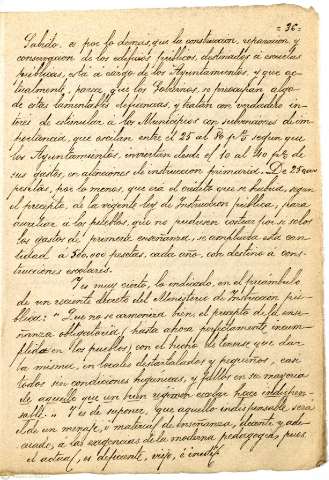 = 36 =
Sabido es por lo demás, que la construcción, reparación y
conservación de los edificios públicos, destinados a escuelas
públicas, está á cargo de los Ayuntamientos, y que ac-
tualmente, parece que los Gobiernos, se preocupan algo
de estas lamentables deficiencias, y tratan con verdadero in-
terés de estimular a los Municipios con subvenciones de im-
portancia, que oscilan entre el 25 al 50 p% según que
los Ayuntamientos, inviertan desde el 10 al 40 p% de
sus gastos, en atenciones de instrucción primaria. De 25000
pesetas, por lo menos, que era el crédito que se incluía, según
el precepto, de la vigente ley de Instrucción pública, para
auxiliar á los pueblos, que no pudiesen costear por si solos
los gastos de primera enseñanza, se ampliaba esta can-
tidad á 500,000 pesetas, cada año, con destino a cons-
trucciones escolares.
Y es muy cierto, lo indicado, en el preámbulo
de un reciente decreto del Ministerio de Instrucción pú-
blica: "Que no se armoniza bien el precepto de la ense-
ñanza obligatoria (hasta ahora perfectamente incum-
plida en los pueblos) con el hecho de tenerse, que dar
la misma, en locales destartalados y pequeños, casi
todos sin condiciones higienicas, y faltos en su mayoría
de aquello que un buen regimen escolar hace indispen-
sable." Y es de suponer, que aquello indispensable será
el de un menaje, ó material de enseñanza, decente y ade-
cuado, á las exigencias de la moderna pedagogía, pues
el actual, es deficiente, viejo, é inútil.